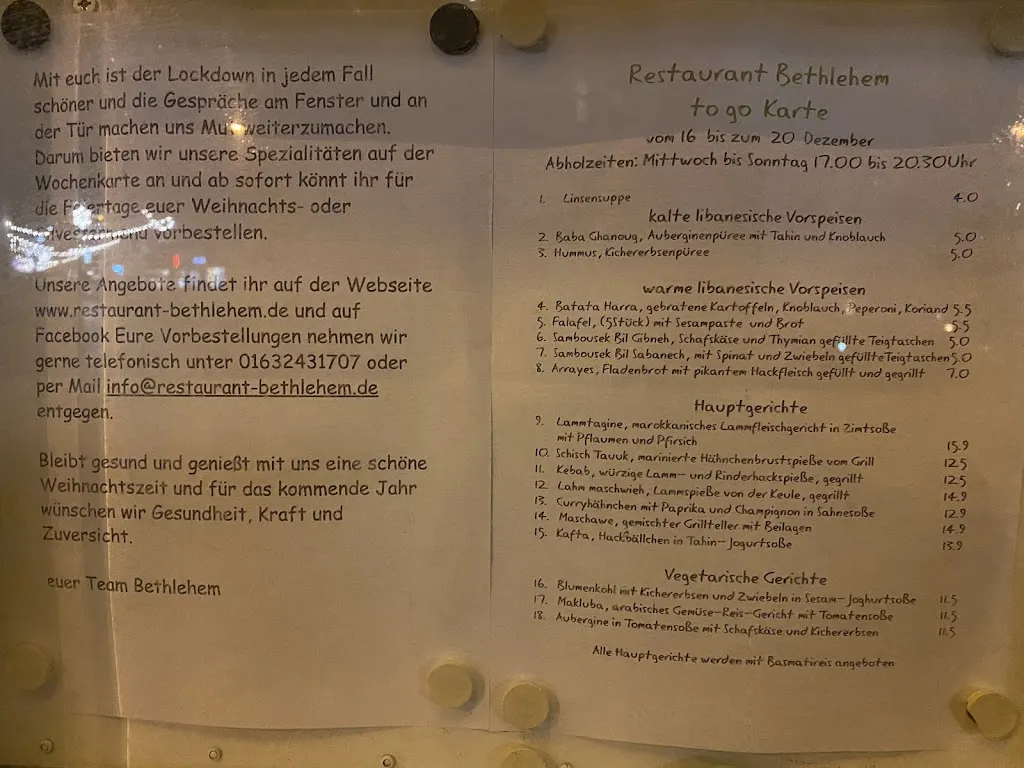 Mit euch ist der Lockdown in jedem Fall
schöner und die Gespräche am Fenster und an
der Tür machen uns Mut weiterzumachen.
Darum bieten wir unsere Spezialitäten auf der
Wochenkarte an und ab sofort könnt ihr für
die Feiertage euer Weihnachts- oder
Silvestermenü vorbestellen.
Unsere Angebote findet ihr auf der Webseite
www.restaurant-bethlehem.de und auf
Facebook Eure Vorbestellungen nehmen wir
gerne telefonisch unter 01632431707 oder
per Mail info@restaurant-bethlehem.de
entgegen.
Bleibt gesund und genießt mit uns eine schöne
Weihnachtszeit und für das kommende Jahr
wünschen wir Gesundheit, Kraft und
Zuversicht.
euer Team Bethlehem
Restaurant Bethlehem
to go Karte
vom 16 bis zum 20 Dezember
Abholzeiten: Mittwoch bis Sonntag 17.00 bis 20.30Uhr
1. Linsensuppe 4.0
kalte libanesische Vorspeisen
2. Baba Ghanoug, Auberginenpüree mit Tahin und Knoblauch 5.0
3. Hummus, Kichererbsenpüree 5.0
warme libanesische Vorspeisen
4. Batata Harra, gebratene Kartoffeln, Knoblauch, Peperoni, Koriand 5.5
5. Falafel, (5Stück) mit Sesampaste und Brot 5.5
6. Sambousek Bil Gibneh, Schafskäse und Thymian gefüllte Teigtaschen 5.0
7. Sambousek Bil Sabanech, mit Spinat und Zwiebeln gefüllteTeigtaschen 5.0
8. Arrayes, Fladenbrot mit pikantem Hackfleisch gefüllt und gegrillt 7.0
Hauptgerichte
9. Lammtagine, marokkanisches Lammfleischgericht in Zimtsoße
mit Pflaumen und Pfirsich 15.9
10. Schisch Tavuk, marinierte Hähnchenbrustspieße vom Grill 12.5
11. Kebab, würzige Lamm- und Rinderhackspieße, gegrillt 12.5
12. Lahm maschwieh, Lammspieße von der Keule, gegrillt 14.9
13. Curryhähnchen mit Paprika und Champignon in Sahnesoße 12.9
14. Maschawe, gemischter Grillteller mit Beilagen 14.9
15. Kafta, Hackbällchen in Tahin-Jogurtsoße 13.9
Vegetarische Gerichte
16. Blumenkohl mit Kichererbsen und Zwiebeln in Sesam-Joghurtsoße 11.5
17. Makluba, arabisches Gemüse-Reis-Gericht mit Tomatensoße 11.5
18. Aubergine in Tomatensoße mit Schafskäse und Kichererbsen 11.5
Alle Hauptgerichte werden mit Basmatireis angeboten